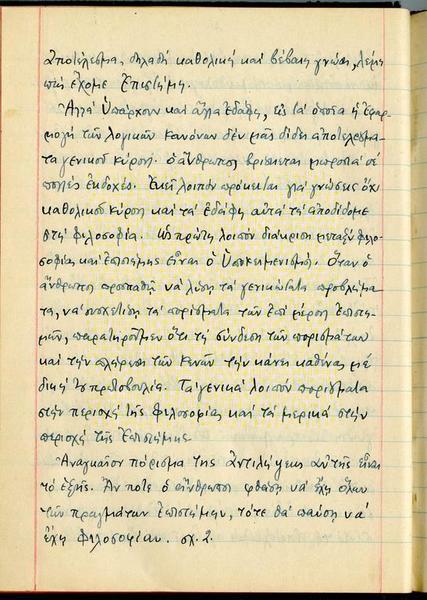 ἀποτέλεσμα, δηλαδή καθολική καὶ βέβαιη γνῶση, λέμε
πώς ἔχομε Ἐπιστήμη.
Ἀλλά ὑπάρχουν καὶ ἄλλα ἐδάφη, εἰς τά ὁποῖα ἡ ἐφαρ-
μογή τῶν λογικῶν κανόνων δέν μᾶς δίδει ἀποτελέσμα-
τα γενικοῦ κύρους. Ὁ ἄνθρωπος βρίσκεται μπροστά σέ
πολλές ἐκδοχές. Ἐκεῖ λοιπόν πρόκειται γιά γνώσεις ὄχι
καθολικοῦ κύρους καὶ τά ἐδάφη αὐτά τά ἀποδίδομε
στή φιλοσοφία. Ὡς πρώτη λοιπόν διάκριση μεταξύ φιλο-
σοφίας καὶ ἐπιστήμης εἶναι ὁ Ὑποκειμενισμός. Ὅταν ὁ
ἄνθρωπος προσπαθῇ νά λύση τά γενικώτατα προβλήμα-
τα, νά συσχετίση τά πορίσματα τῶν ἐπί μέρους ἐπιστη-
μῶν, παρατηροῦμεν ὅτι τή σύνδεση τῶν πορισμάτων
καὶ τήν πλήρωση τῶν κενῶν τήν κάνει καθένας μέ
δική του πρωτοβουλία. Τά γενικά λοιπόν πορίσματα
στήν περιοχή τῆς φιλοσοφίας καὶ τά μερικά στήν
περιοχή τῆς ἐπιστήμης.
Ἀναγκαῖον πόρισμα τῆς ἀντιλήψεως αὐτῆς εἶναι
τό ἑξῆς. Ἄν ποτε ὁ ἄνθρωπος φθάση νά ἔχη ὅλων
τῶν πραγμάτων ἐπιστήμην, τότε θά παύση νά
ἔχη φιλοσοφίαν. σχ. 2.